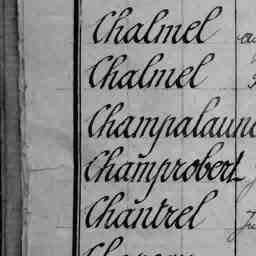 Chalmel
Chalmel
Champalaune
Champrobert
Chantrel